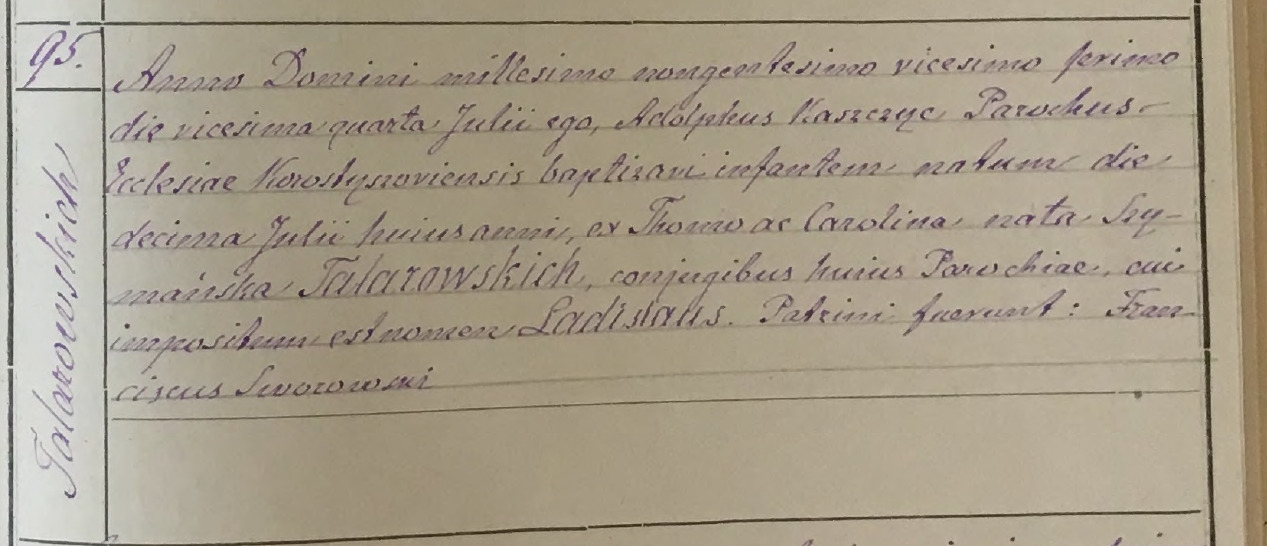 95.
Talarowskich
Anno Domini millesimo nongentesimo vicesimo primo
die vicesima quarta Julii ego, Adolphus Kaszczyc Parochus
Ecclesiae Korostyszoviensis baptizavi infantem natum die
decima Julii huius anni, ex Thoma ac Carolina nata Szy-
mańska Talarowskich, conjugibus huius Parochiae, cui
impositum est nomen Ladislaus. Patrini fuerunt: Fran-
ciscus